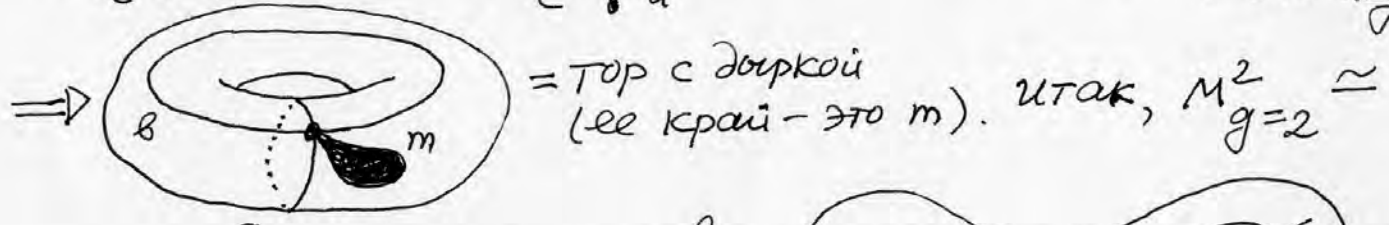 ⇒ в m = тор с дыркой
(ее край - это m). итак, M²g=2 ≃